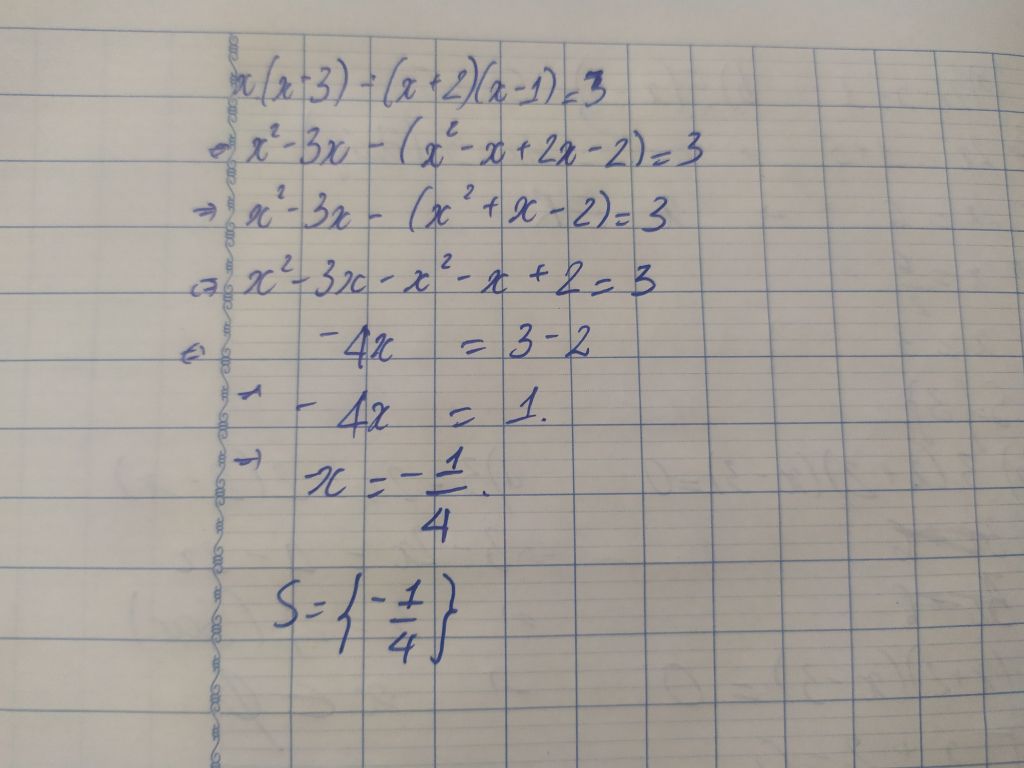 x(x-3) - (x+2)(x-1) = 3
⇔ x² - 3x - (x² - x + 2x - 2) = 3
⇒ x² - 3x - (x² + x - 2) = 3
⇔ x² - 3x - x² - x + 2 = 3
⇔ -4x = 3 - 2
⇔ -4x = 1.
⇒ x = -1/4.
S = {-1/4}